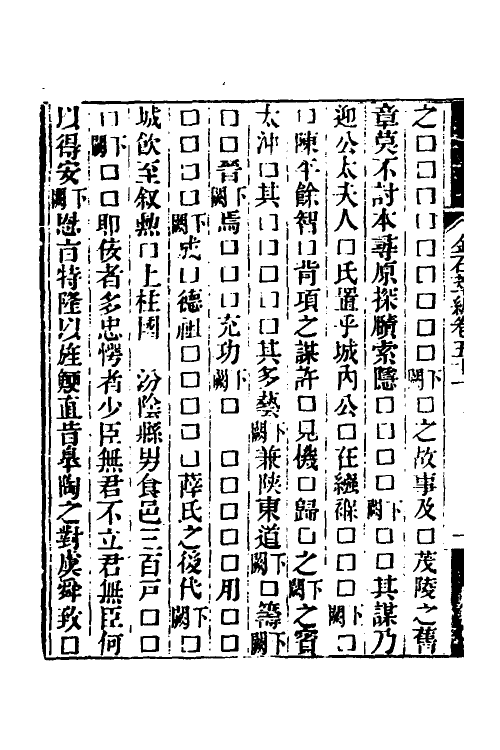 金石萃編卷五十一
之□□□□□□□□□下闕□之故事及□茂陵之舊
章莫不討本尋原探賾索隱□□□□下闕□□其謀乃
迎公太夫人□氏置乎城內公□在繈褓□□□下闕□
□陳平餘智□肯項之謀許□兄儀□歸□之下闕之賓
太沖□其□□□□□其多藝下闕兼陝東道下闕□籌下闕
□□晉下闕焉□□□充功下闕□　□□□□□用□□
□□□□下闕戎□德祖□□□□□薛氏之後代下闕□
城飲至敘勲□上柱國　汾陰縣男食邑三百戶□□
□下闕□□耶佞者多忠愕者少臣無君不立君無臣何
以得安下闕恩言特隆以旌鯁直昔皋陶之對虞舜致□